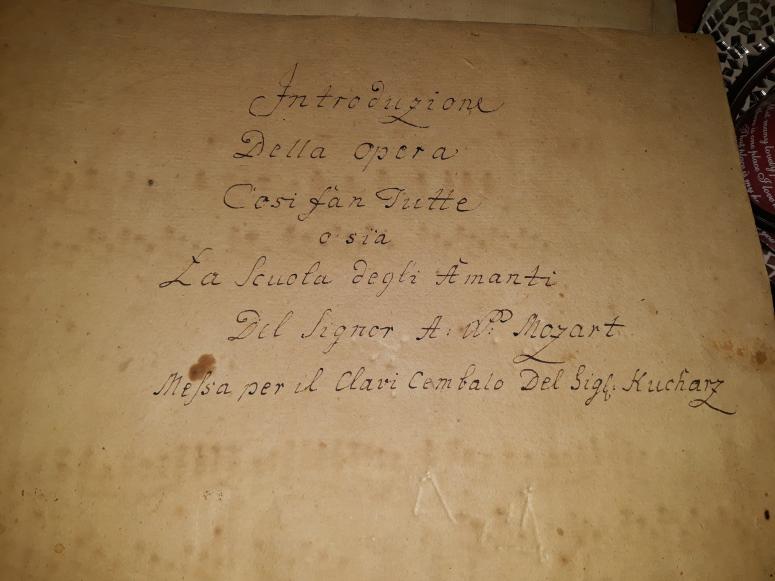 Introduzione
Della opera
Cosi fàn Tutte
o sïa
La Scuola degli Amanti
Del Signor A: Mozart
Meſsa per il Clavi Cembalo Del Sigl: Kucharz